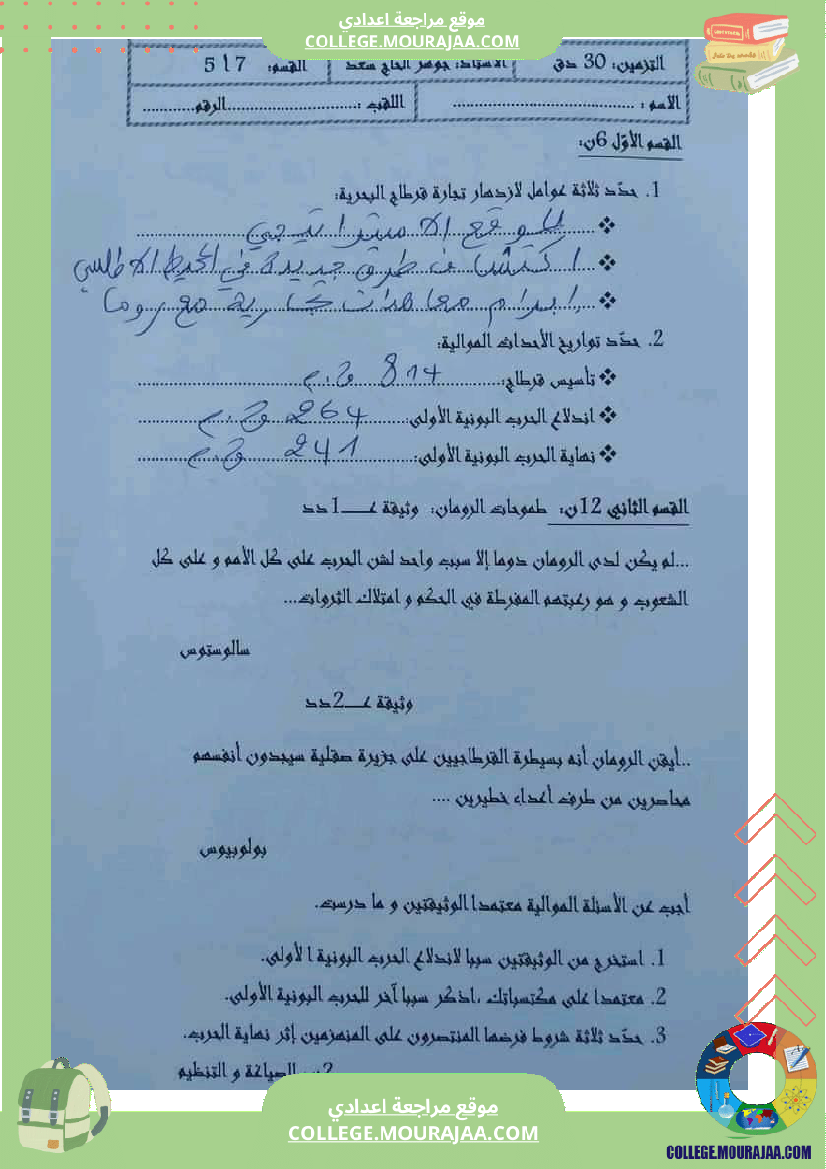 موقع مراجعة اعدادي
COLLEGE.MOURAJAA.COM
التزمين: 30 دق الأستاذ: جوهر الحاج سعد القسم: 7 أ 5
الاسم : ........................ اللقب :........................الرقم............
القسم الأوّل 6ن:
1. حدّد ثلاثة عوامل لازدهار تجارة قرطاج البحرية:
❖ الموقع الاستراتيجي
❖ اكتشاف طرق جديدة في المحيط الاطلسي
❖ ابرام معاهدات تجارية مع روما
2. حدّد تواريخ الأحداث الموالية:
❖ تأسيس قرطاج: 814 ق.م
❖ اندلاع الحرب البونية الأولى: 264 ق.م
❖ نهاية الحرب البونية الأولى: 241 ق.م
القسم الثاني 12ن: طموحات الرومان: وثيقة عـــ1دد
...لم يكن لدى الرومان دوما إلا سبب واحد لشن الحرب على كل الأمم و على كل
الشعوب و هو رغبتهم المفرطة في الحكم و امتلاك الثروات...
سالوستوس
وثيقة عـــ2دد
..أيقن الرومان أنه بسيطرة القرطاجيين على جزيرة صقلية سيجدون أنفسهم
محاصرين من طرف أعداء خطيرين ....
بولوبيوس
أجب عن الأسئلة الموالية معتمدا الوثيقتين و ما درست.
1. استخرج من الوثيقتين سببا لاندلاع الحرب البونية الأولى.
2. معتمدا على مكتسباتك ،اذكر سببا آخر للحرب البونية الأولى.
3. حدّد ثلاثة شروط فرضها المنتصرون على المنهزمين إثر نهاية الحرب.
2ن الصياغة و التنظيم
موقع مراجعة اعدادي
COLLEGE.MOURAJAA.COM
COLLEGE.MOURAJAA.COM